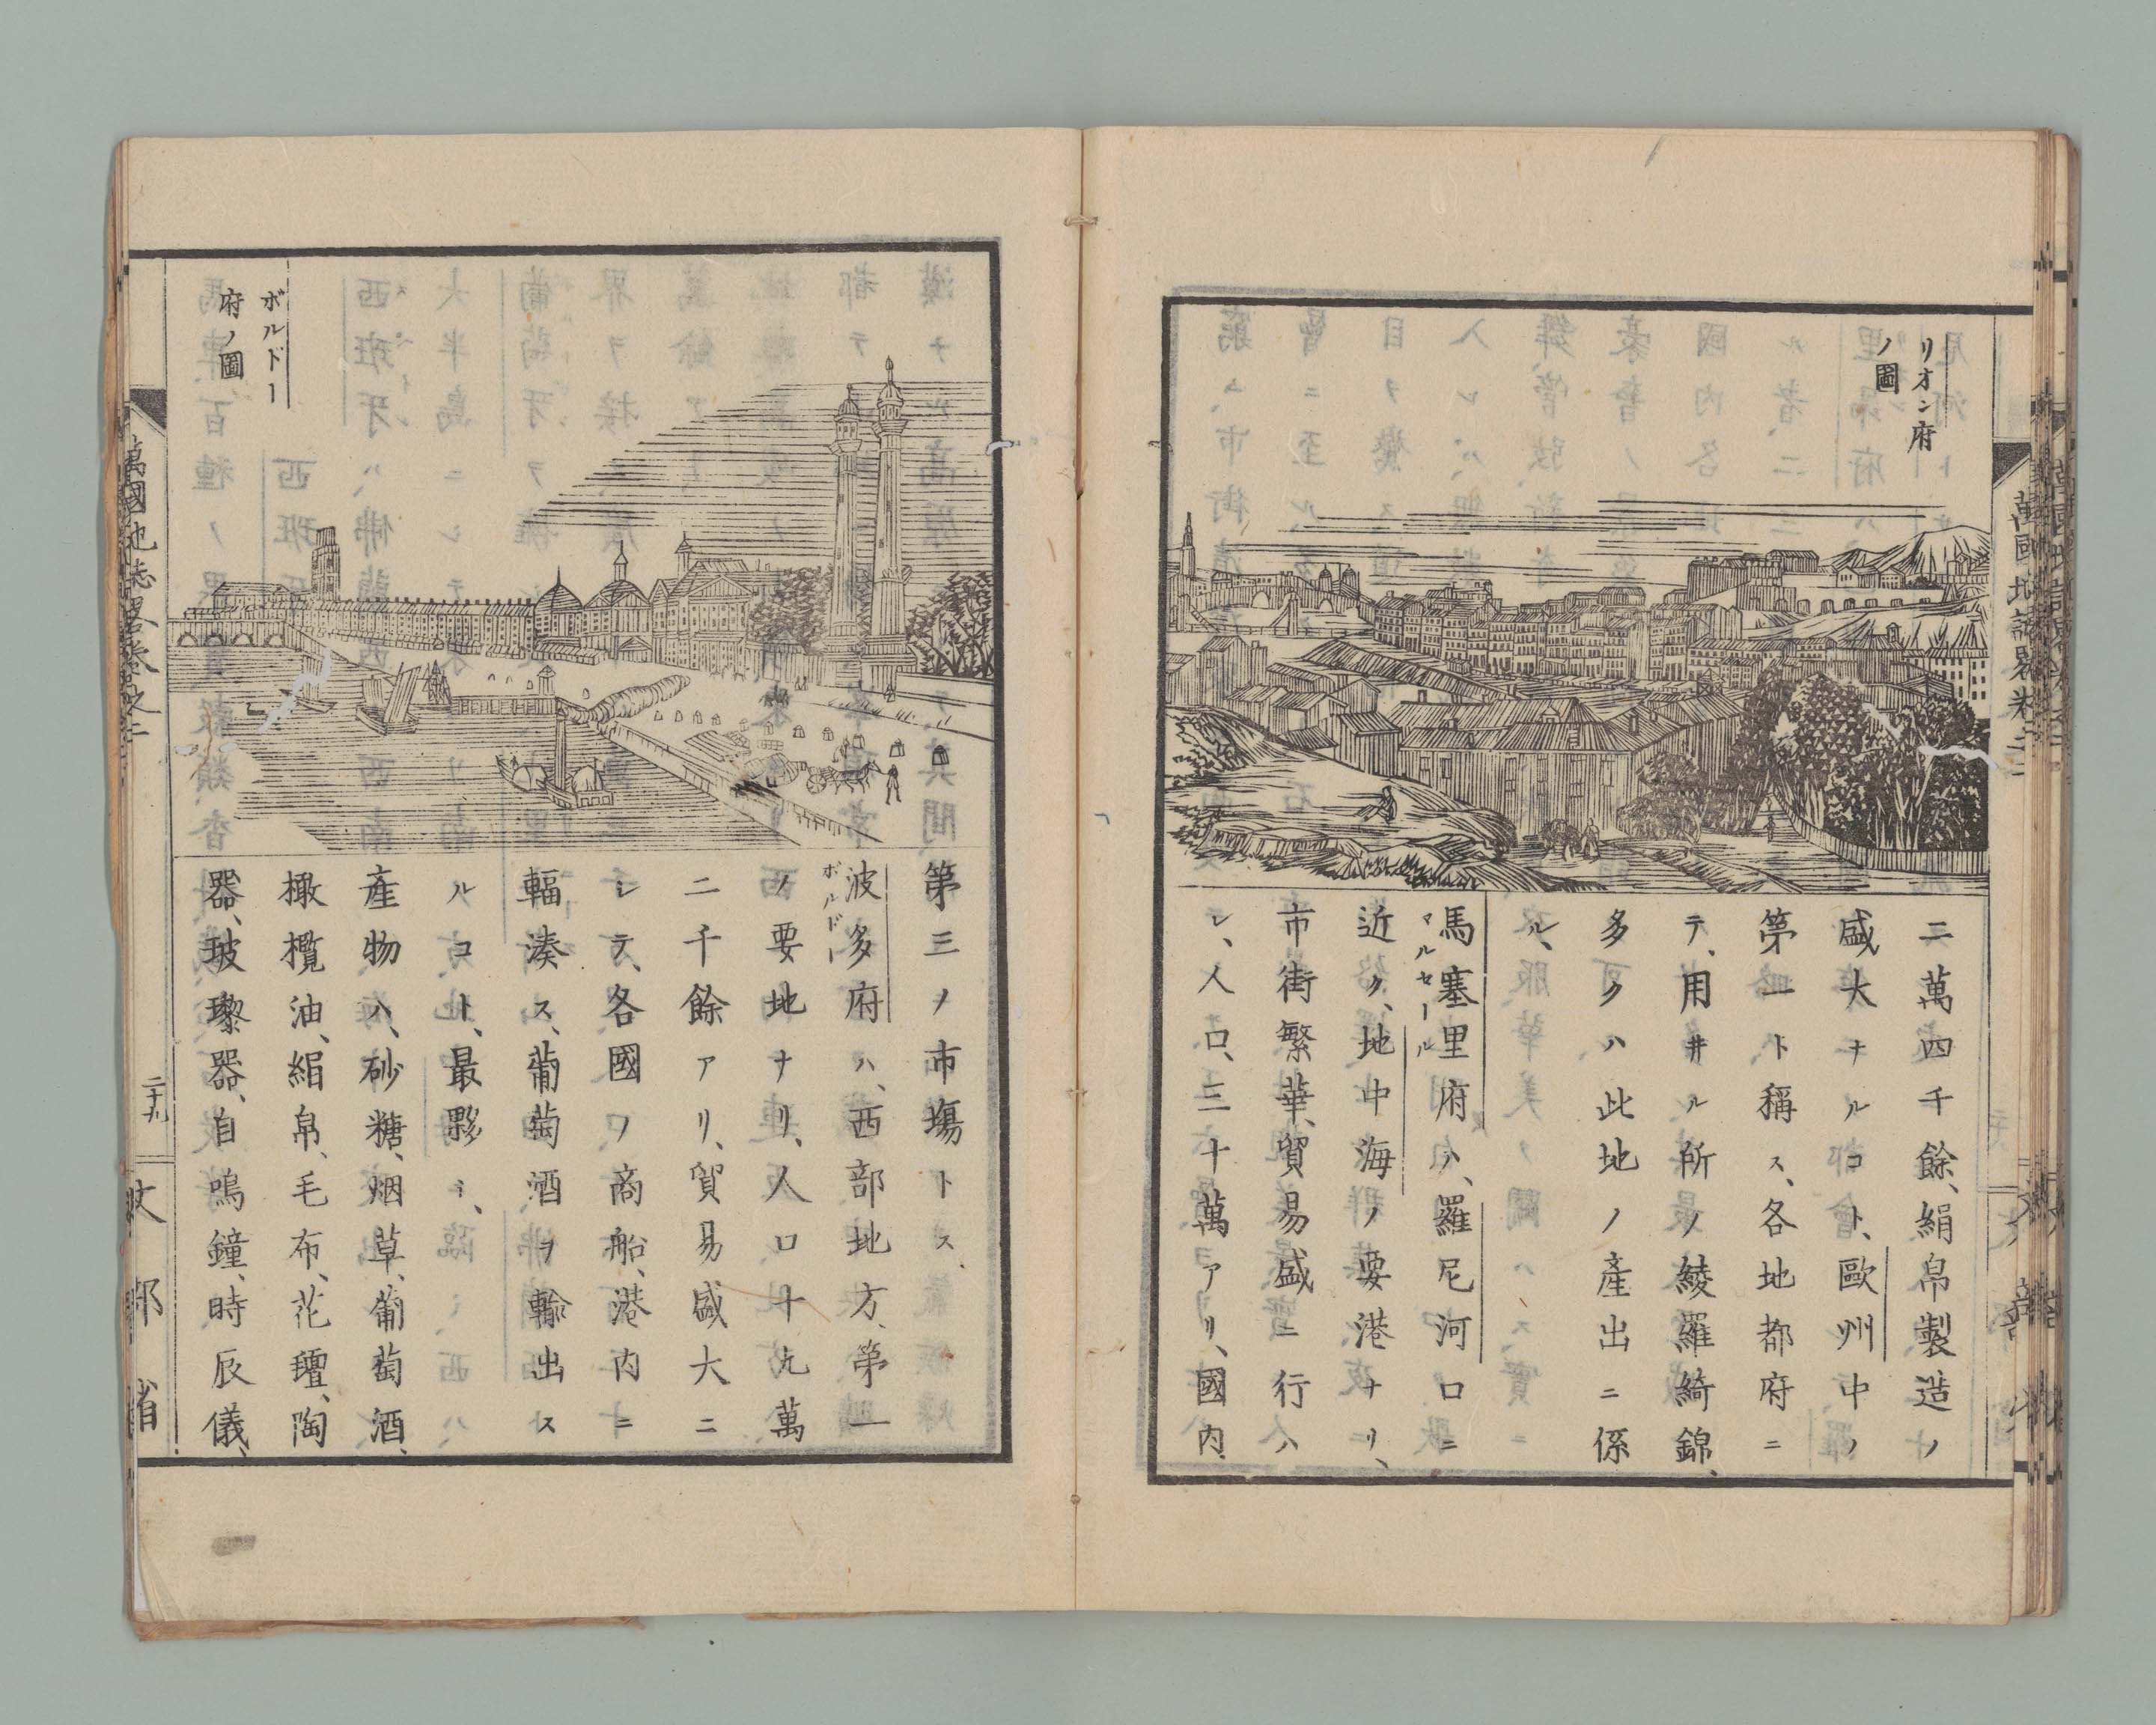 リオン府
ノ圖
三萬四千餘、絹帛製造ノ
盛大ナルコト、歐州中ノ
第一ト稱ス、各地都府ニ
テ、用井ル所ノ綾羅綺錦、
多クハ此地ノ産出ニ係
ル、
馬塞里府ハ、羅尼河口ニ
マルセール
近ク、地中海ノ要港ナリ、
市街繁華、貿易盛ニ行ハ
レ、人口、三十萬アリ、國内、
萬國地誌畧卷之二
第三ノ市塲トス、
波多府ハ、西部地方、第一
ボルドー
ノ要地ナリ、人口十九萬
二千餘アリ、貿易盛大ニ
シテ、各國ノ商船、港内ニ
輻湊ス、葡萄酒ヲ輸出ス
ルコト、最夥シ、
産物ハ、砂糖、烟草、葡萄酒、
橄欖油、絹帛、毛布、花氈、陶
器、玻瓈器、自鳴鐘、時辰儀、
ボルドー
府ノ圖
萬國地誌畧卷之二
二十九
文部省